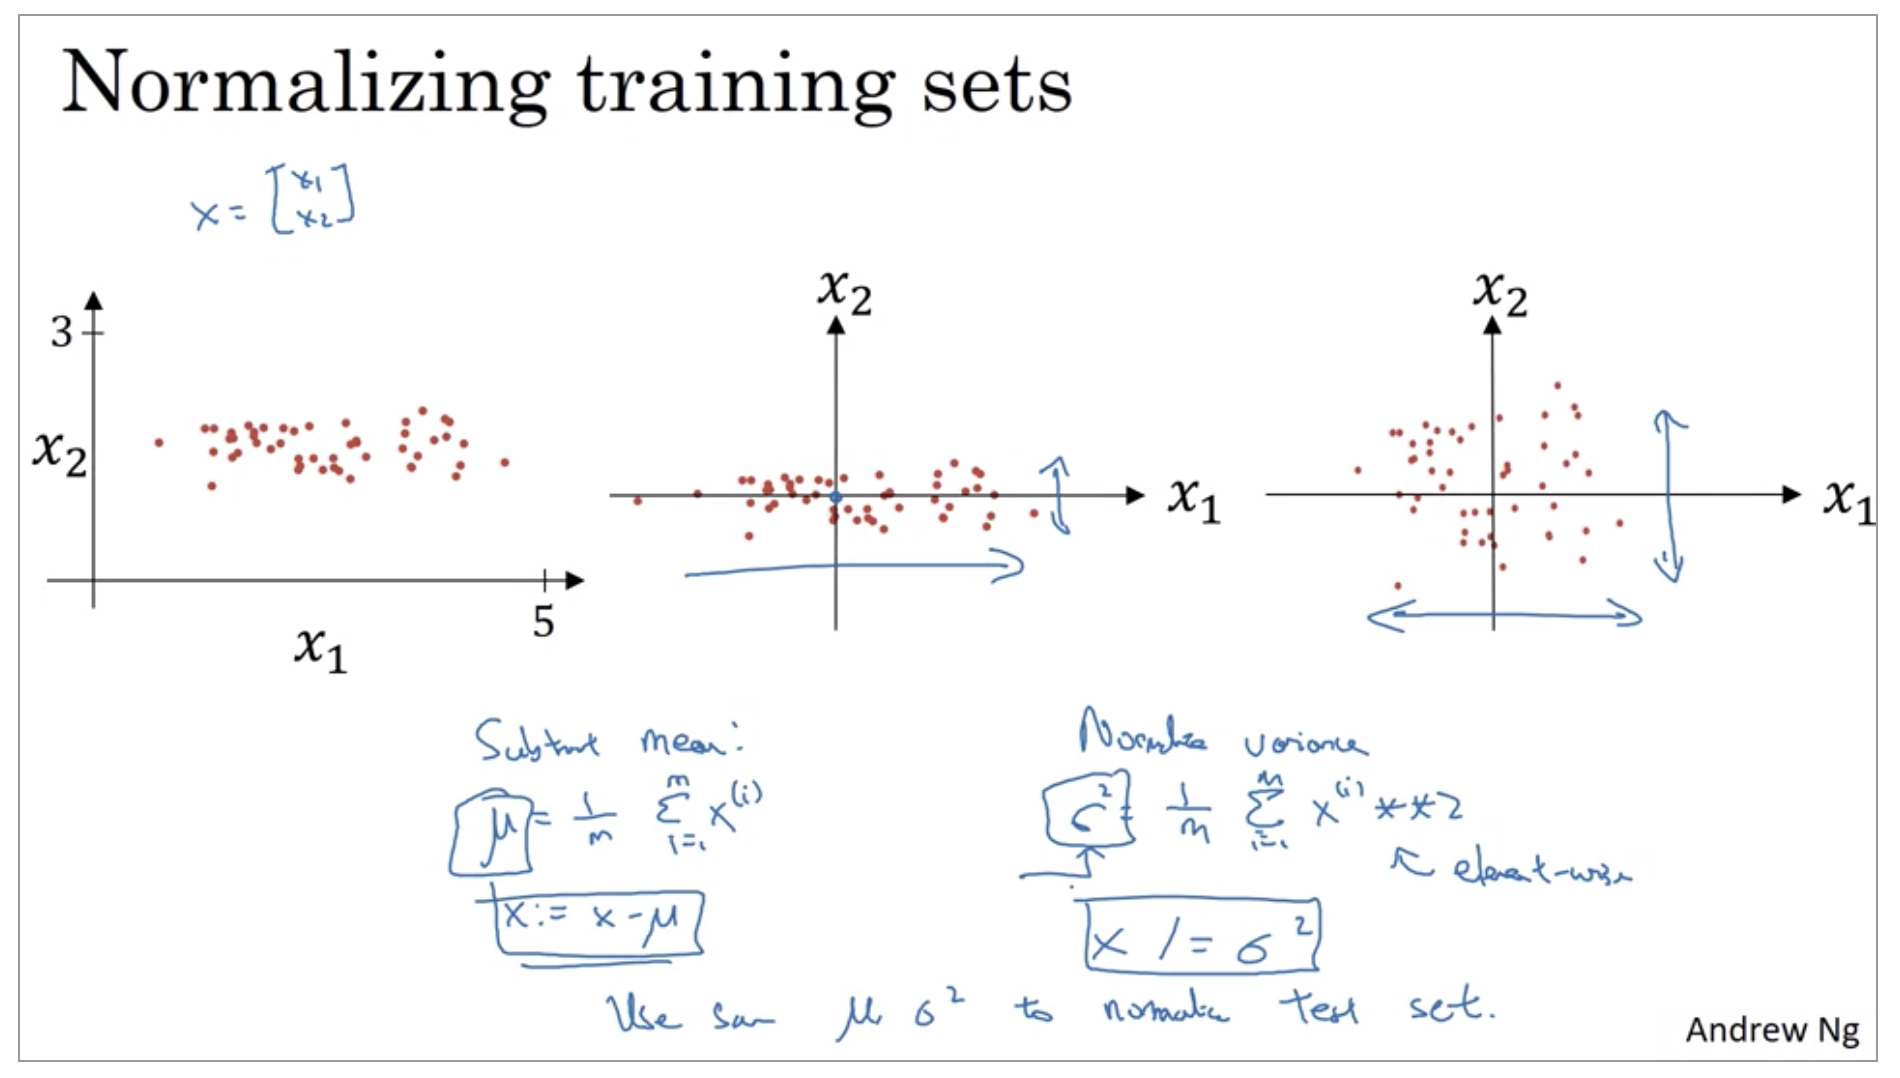 Normalizing training sets
x = [x1
x2]
3
x2
5
x1
x2
x1
x2
x1
Subtract mean:
μ = 1/m Σ_{i=1}^{m} x^(i)
x := x - μ
Normalize variance
σ² = 1/m Σ_{i=1}^{m} x^(i) **2
element-wise
x /= σ²
Use same μ, σ² to normalize test set.
Andrew Ng